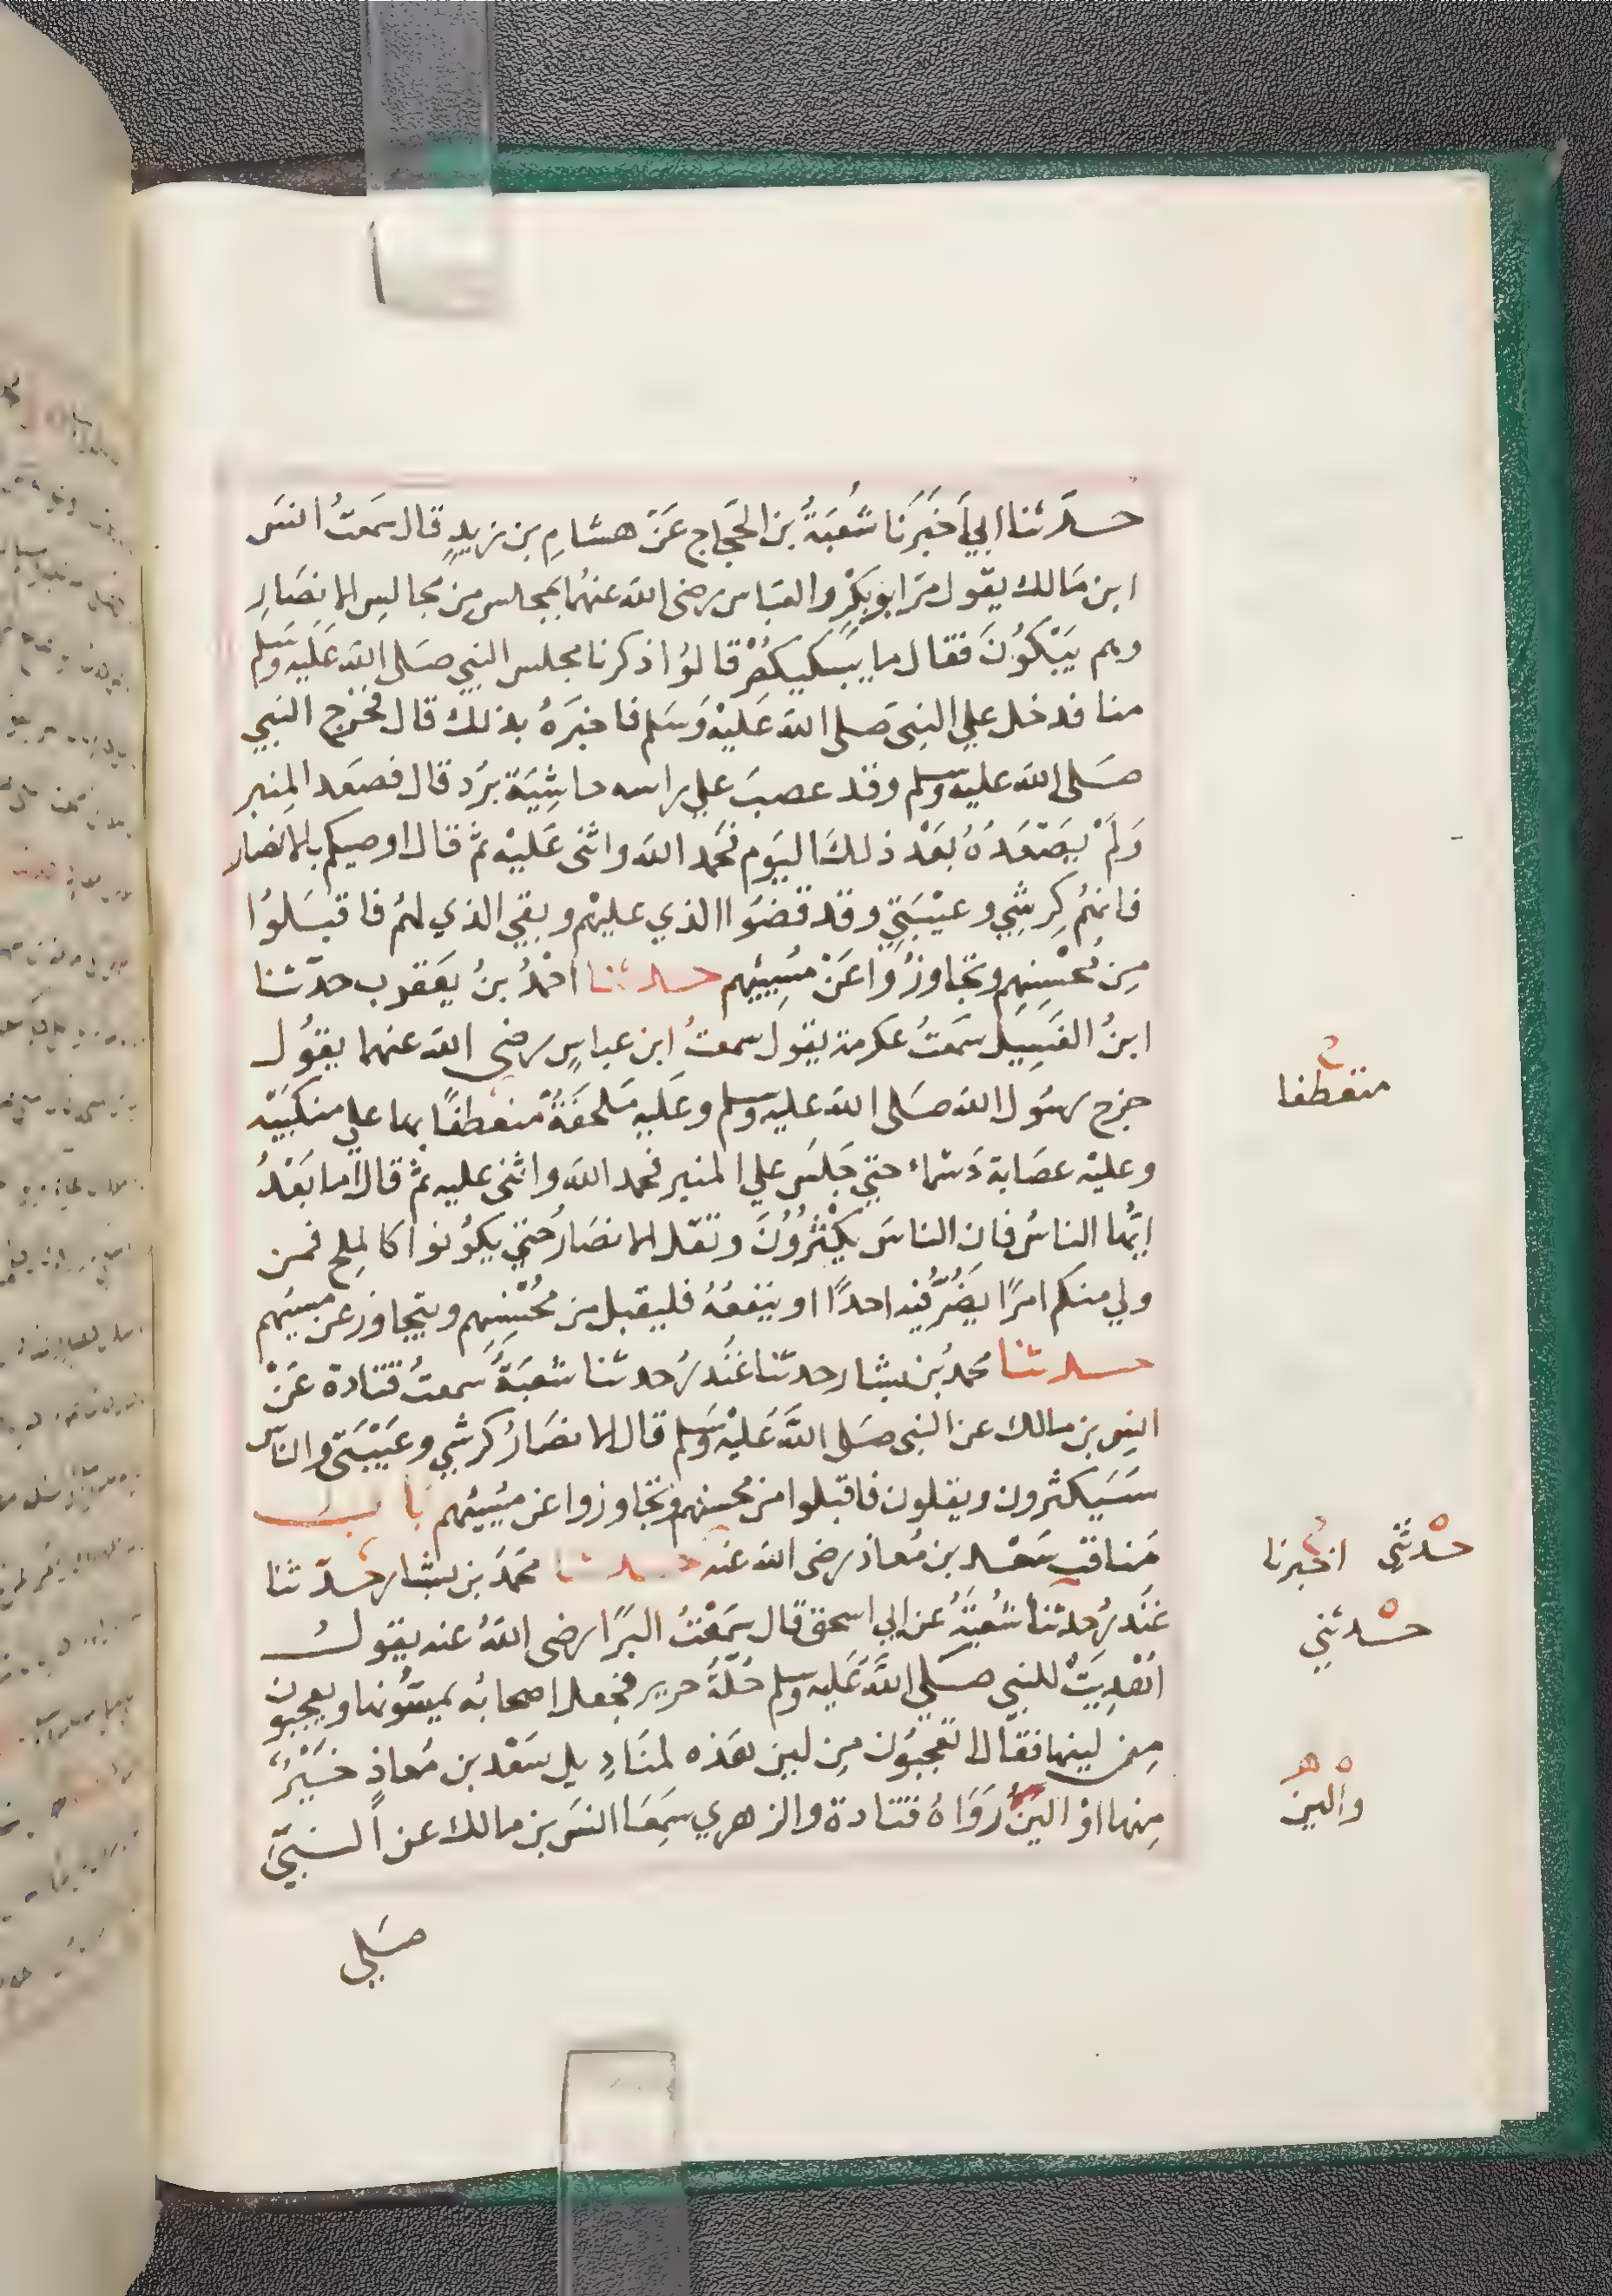 حدثنا ابي أَخبَرَنا شُعبَةُ بن الحَجاج عَنْ هشامِ بن زيدٍ قال سَمعتُ انسَ
ابن مَالك يقول مَرّ ابو بَكرٍ والعَباس رضى الله عنهُما بمجلس مِن مَجالِس الانصَارِ
وهم يَبْكُونَ فقال ما يبكيكمْ قالوُا ذكرنا مجلس النبي صَلى الله عَليه وسَلم
منا فدخل علي النبى صَلى الله عَليْه وَسَلم فاخبَرَهُ بذلك قال فخَرج النبي
صَلى الله عليه وسلم وقد عصبَ علي راسه حاشِيَة بَرَد قال فصعَد المِنبر
وَلَمْ يَصْعَدهُ بَعْد ذلكَ اليَوم فحَمد الله واثنى عَليْه ثم قال اوصيكم بالانصار
فانهُم كِرشِي وعَيْبَتِي وقد قضَوا الذي عليهْم وبقي الذي لهُم فاقبَلوُا
مِن مُحْسِنِهم وتجاوزُوا عَنْ مُسِيئهم حدثنا احْمدُ بنُ يَعقوب حدّثنا
ابنُ الغَسِيل سَمَعتُ عكرمة يقول سمعتُ ابن عباسٍ رضى الله عنهما يقوُل
خرج رسُول الله صَلى الله عليه وسلم وعَليه مَلحفَةٌ منعطفًا بها علي منكبَيْه
وعليْه عصَابة دَسْماء حتي جَلسَ علي المنبر فحمد الله واثنى عليه ثم قال أما بَعْدُ
ايّها الناسُ فان الناسَ يكْثُرُونَ وتقل الانصَارُ حتي يكوُنوا كالملِح فمن
ولي منكم امرًا يَضُرُّ فيه احدًا او ينفعُهُ فليقبل من مُحْسِنِهِم ويتجاوز عن مسيئهم
حدثنا محمدُ بن بشار حدثنا غنَدَرُ حدثنا شعبَةُ سَمعتُ قتادة عَنْ
انسِ بن مالك عن النبى صَلى اللهُ عَليْه وَسَلم قال الانصَارُ كرشي وعَيْبَتى والناس
سَيَكثرون ويقلون فاقبلوا من محسنهم وتجاوزوا عن مسُيئهم باب
مَناقب سَعْد بن مُعاذ رضى الله عنه حدثنا محمَدُ بن بشار حدّثنا
غنَدرُ حدثنا شُعبَةُ عن ابي اسحق قال سَمعْتُ البرَا رضى اللهُ عنه يقول
اهْدِيَتْ للنبي صَلي اللهُ عَليه وسلم حُلّةُ حرير فجعل اصحابُه يمسّونها ويعجبون
مِن لينها فقال اتعجبَون مِن لين هَذه لمنَادِيل سَعْد بن مُعاذٍ خَيْرٌ
مِنها اوْ الينُ رَوَاهُ قتادة والزهري سَمِعَا انسَ بن مالك عن النبيّ
صَلي
متعطفا
حدثنى اخبرنا
حدثني
وألين